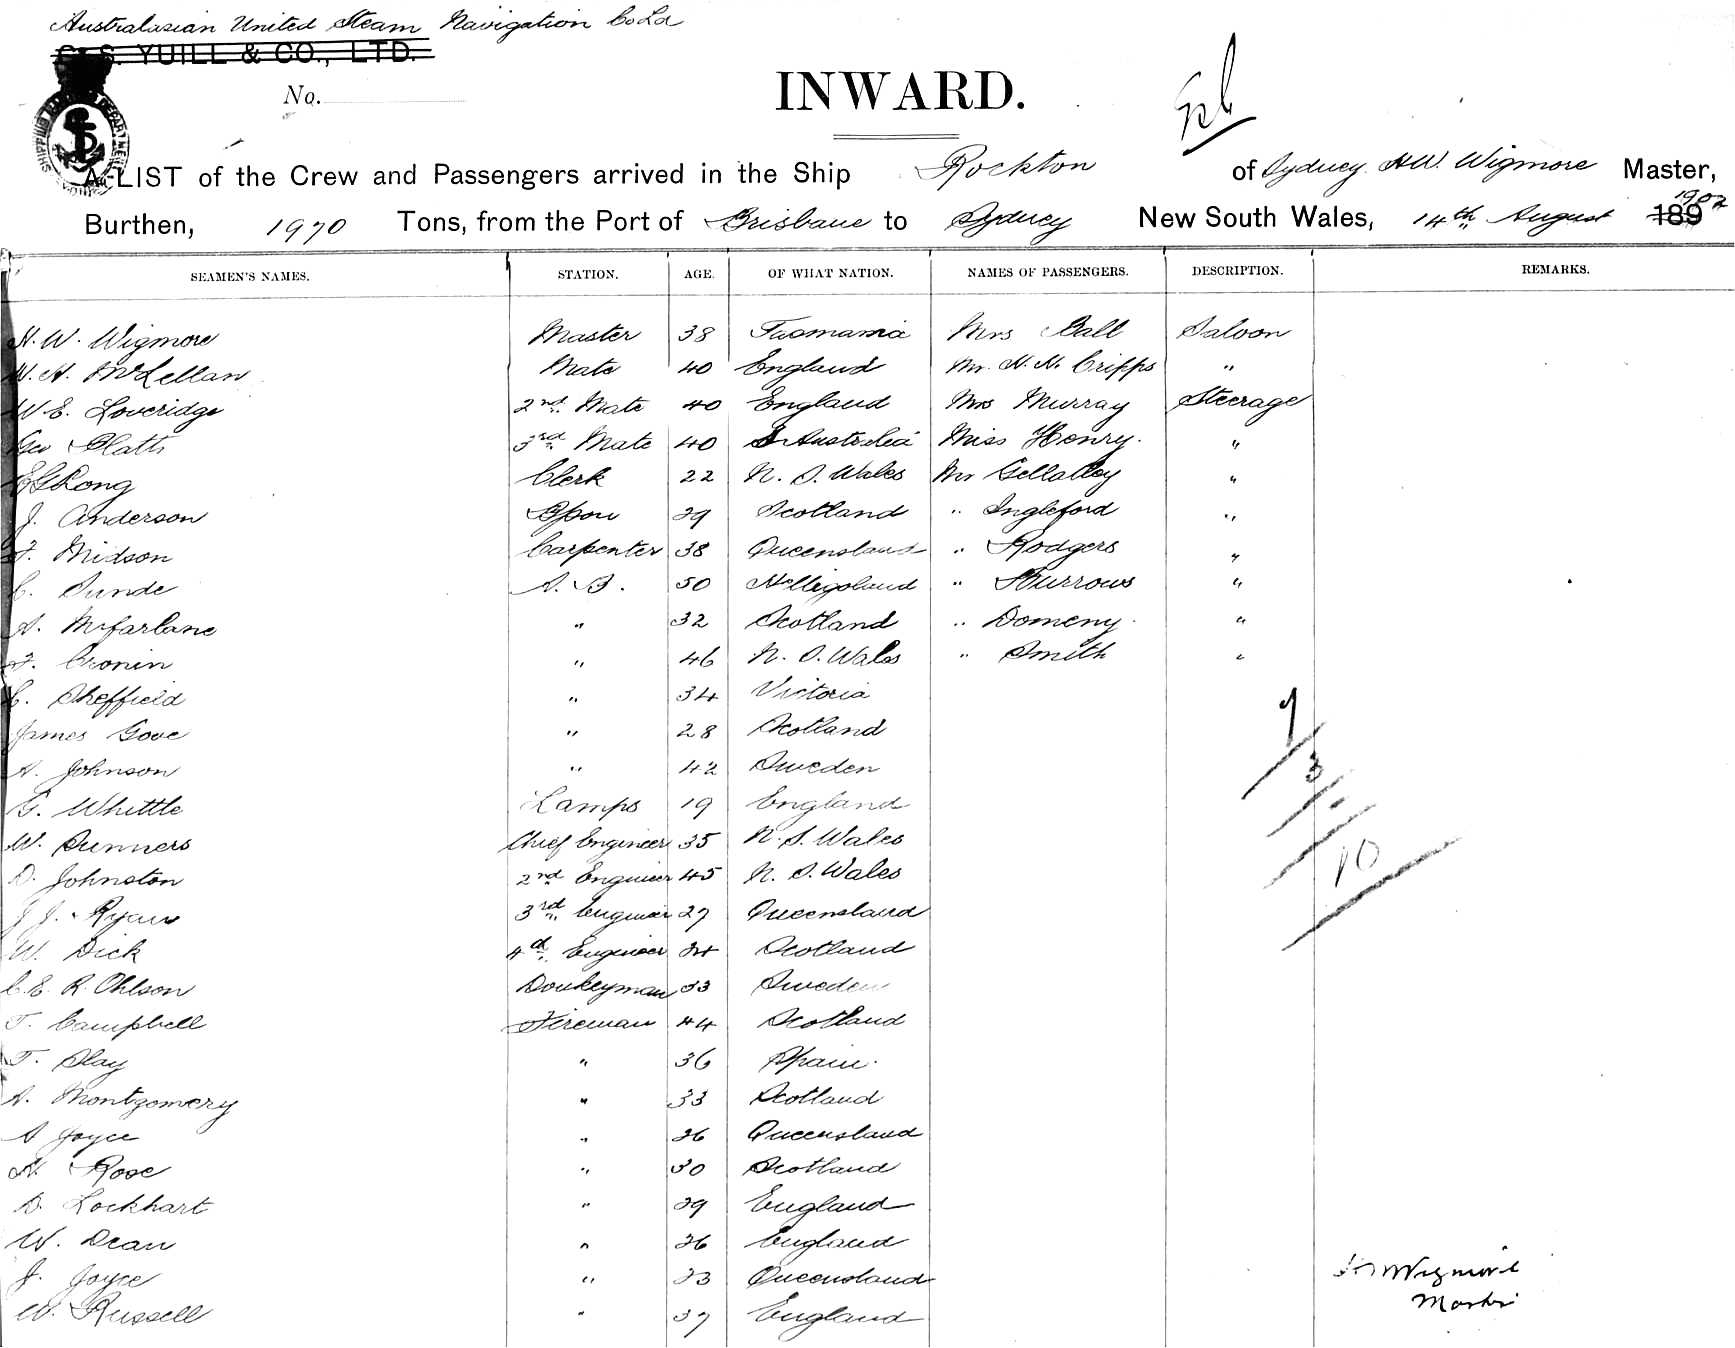 Australasian United Steam Navigation Co Ld
G. S. YUILL & CO., LTD.
No.
INWARD.
SHIPPING DEPARTMENT
A LIST of the Crew and Passengers arrived in the Ship Rockton of Sydney H.W. Wigmore Master,
Burthen, 1970 Tons, from the Port of Brisbane to Sydney New South Wales, 14th August 189 1902
SEAMEN'S NAMES. STATION. AGE. OF WHAT NATION. NAMES OF PASSENGERS. DESCRIPTION. REMARKS.
H. W. Wigmore Master 38 Tasmania Mrs Ball Saloon
W. A. McLellan Mate 40 England Mr. H. H. Cripps "
W. E. Loveridge 2nd Mate 40 England Mrs Murray Steerage
Geo Platts 3rd Mate 40 S Australia Miss Henry. "
Clerk 22 N. S. Wales Mr Gellatley "
J. Anderson Bosn 29 Scotland " Ingleford "
F. Midson Carpenter 38 Queensland " Rodgers "
C. Sunde A. B. 50 Helligoland " Burrows "
A. McFarlane " 32 Scotland " Domeny. "
F. Cronin " 46 N. S. Wales " Smith "
C. Sheffield " 34 Victoria
James Gove " 28 Scotland
A. Johnson " 42 Sweden
G. Whittle Lamps 19 England
W. Sunners Chief Engineer 35 N. S. Wales
D. Johnston 2nd Engineer 45 N. S. Wales
J. J. Ryan 3rd Engineer 27 Queensland
W. Dick 4d Engineer 24 Scotland
C. E. R. Ohlson Donkeyman 33 Sweden
T. Campbell Fireman 44 Scotland
T. Slay " 36 Spain.
A. Montgomery " 33 Scotland
A Joyce " 26 Queensland
H. Rose " 30 Scotland
D. Lockhart " 29 England
W. Dean " 26 England
J. Joyce " 23 Queensland
W. Russell " 37 England
9
3
10
Wigmore
Master